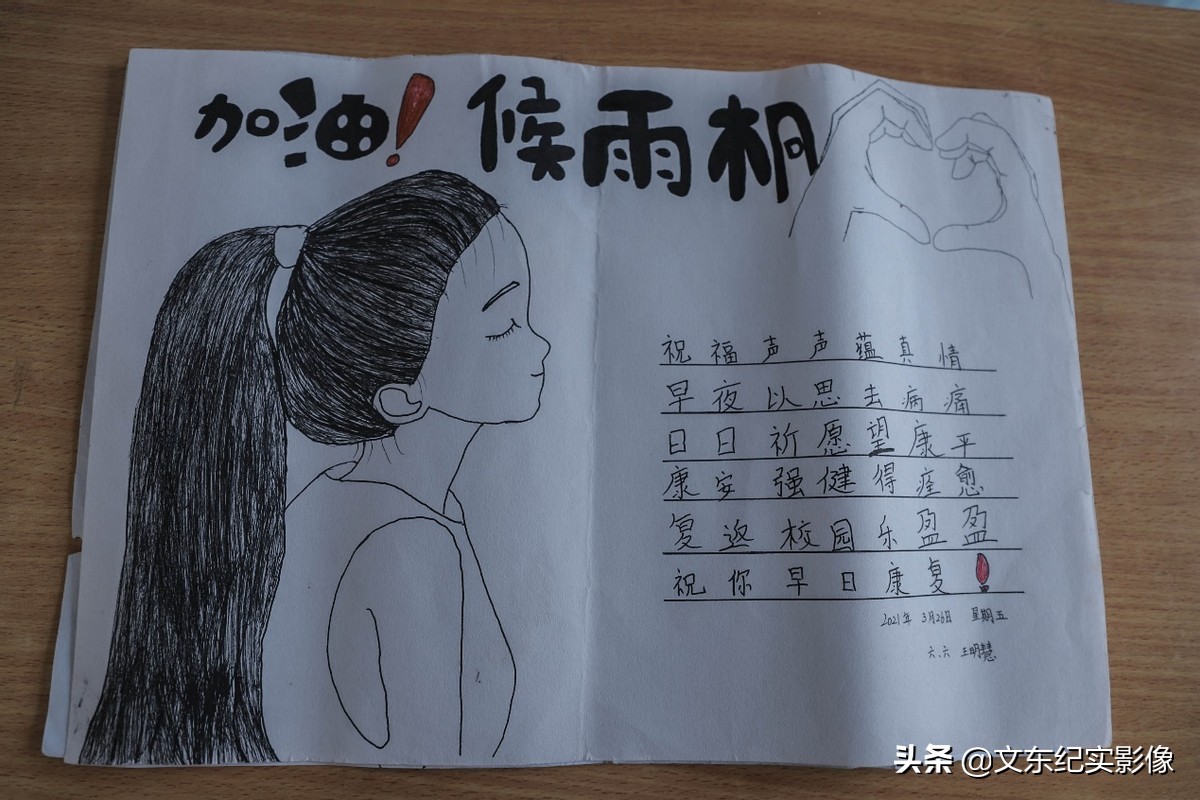 加油! 候雨桐
祝福声声蕴真情
早夜以思去病痛
日日祈愿望康平
康安强健得痊愈
复返校园乐盈盈
祝你早日康复!
2021年 3月26日 星期五
六、六 王明慧
头条 @文东纪实影像